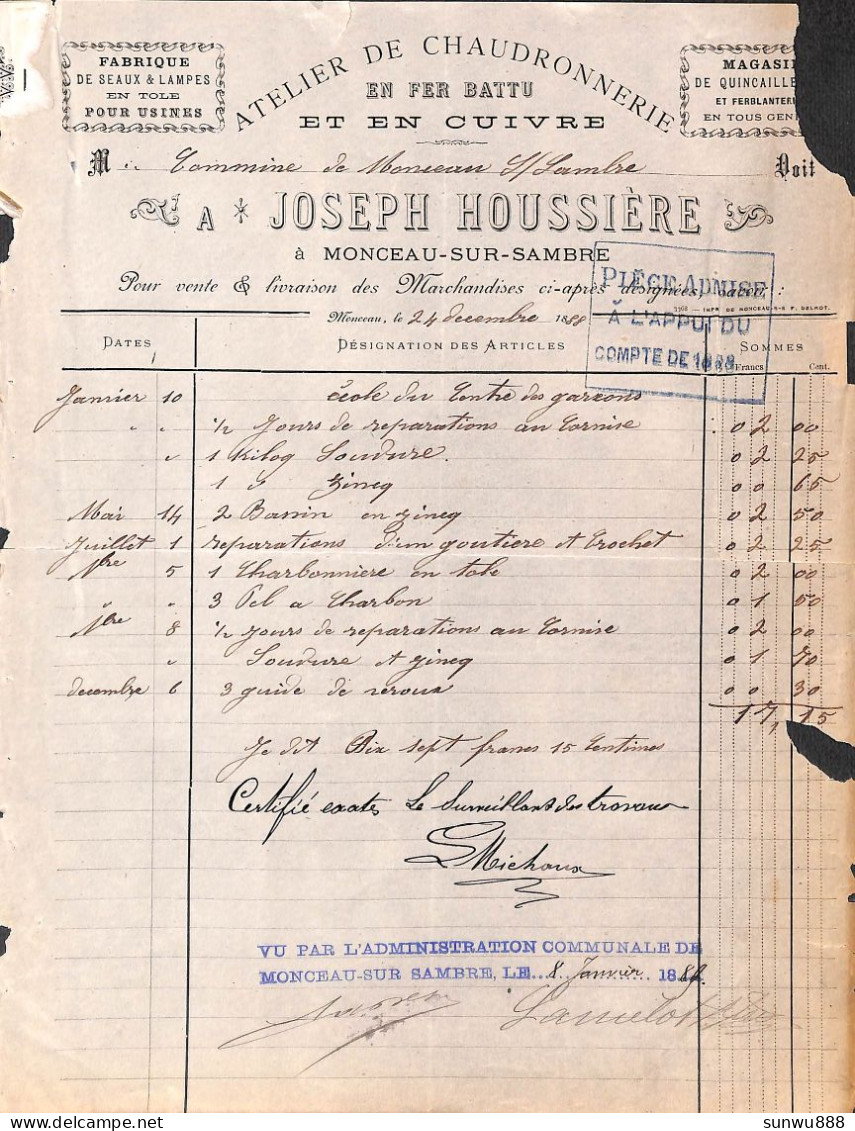 FABRIQUE
DE SEAUX & LAMPES
EN TOLE
POUR USINES
ATELIER DE CHAUDRONNERIE
EN FER BATTU
ET EN CUIVRE
MAGASI
DE QUINCAILLE
ET FERBLANTERI
EN TOUS GEN
M Commune de Monceau S/Sambre Doit
A JOSEPH HOUSSIÈRE
à MONCEAU-SUR-SAMBRE
Pour vente & livraison des Marchandises ci-après désignées, savoir :
IMPR. DE MONCEAU-S-S F. DELMOT.
PIÈCE ADMISE
À L'APPUI DU
COMPTE DE 1888
Monceau, le 24 decembre 1888
DATES DÉSIGNATION DES ARTICLES SOMMES
Francs Cent.
Janvier 10 école du Centre des garcons
" " 1/2 Jours de reparations au Cornise 02 00
" 1 Kilog Soudure. 02 25
1 " Zincq 00 65
Mai 14 2 Bassin en zincq 02 50
Juillet 1 reparations d'un goutiere et Crochet 02 25
9bre 5 1 Charbonniere en tole 02 00
" " 3 Pel a Charbon 01 50
9bre 8 1/2 jours de reparations au Cornise 02 00
" Soudure et zincq 01 70
decembre 6 3 guide de 00 30
17,15
Je dit Dix sept francs 15 Centimes
Certifié exate, Le Surveillant des travaux
Michaux
VU PAR L'ADMINISTRATION COMMUNALE DE
MONCEAU-SUR SAMBRE, LE 8 Janvier 1889.
sunwu888